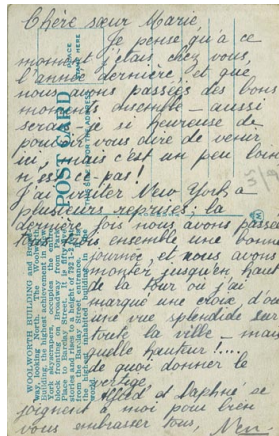 Chère sœur Marie,
Je pense qu'à ce
moment j'étais chez vous,
l'année dernière, et que
nous avons passées des bons
moments ensemble – aussi
serai-je si heureuse de
pouvoir vous dire de venir
ici, mais c'est un peu loin
n'est ce pas!
J'ai visiter New York à
plusieurs reprises; la
dernière fois nous avons passé
tous ensemble une bonne
journée, et nous avons
monter jusqu'en haut
de la tour où j'ai
marqué une croix, d'où
une vue splendide sur
toute la ville – mais
quelle hauteur!...
de quoi donner le
vertige,
et Daphné se
joignent à moi pour bien
vous embrasser tous,
POST CARD
PLACE
STAMP HERE
THIS SIDE IS FOR THE ADDRESS
WOOLWORTH BUILDING and
way, looking North. The
Building, the highest achievement in
York skyscrapers, occupies the
block fronting on Broadway from Park
Place to Barclay Street. It is
stories and rises to a height of
from the Barclay Street entrance.
the highest inhabited building in the
world.